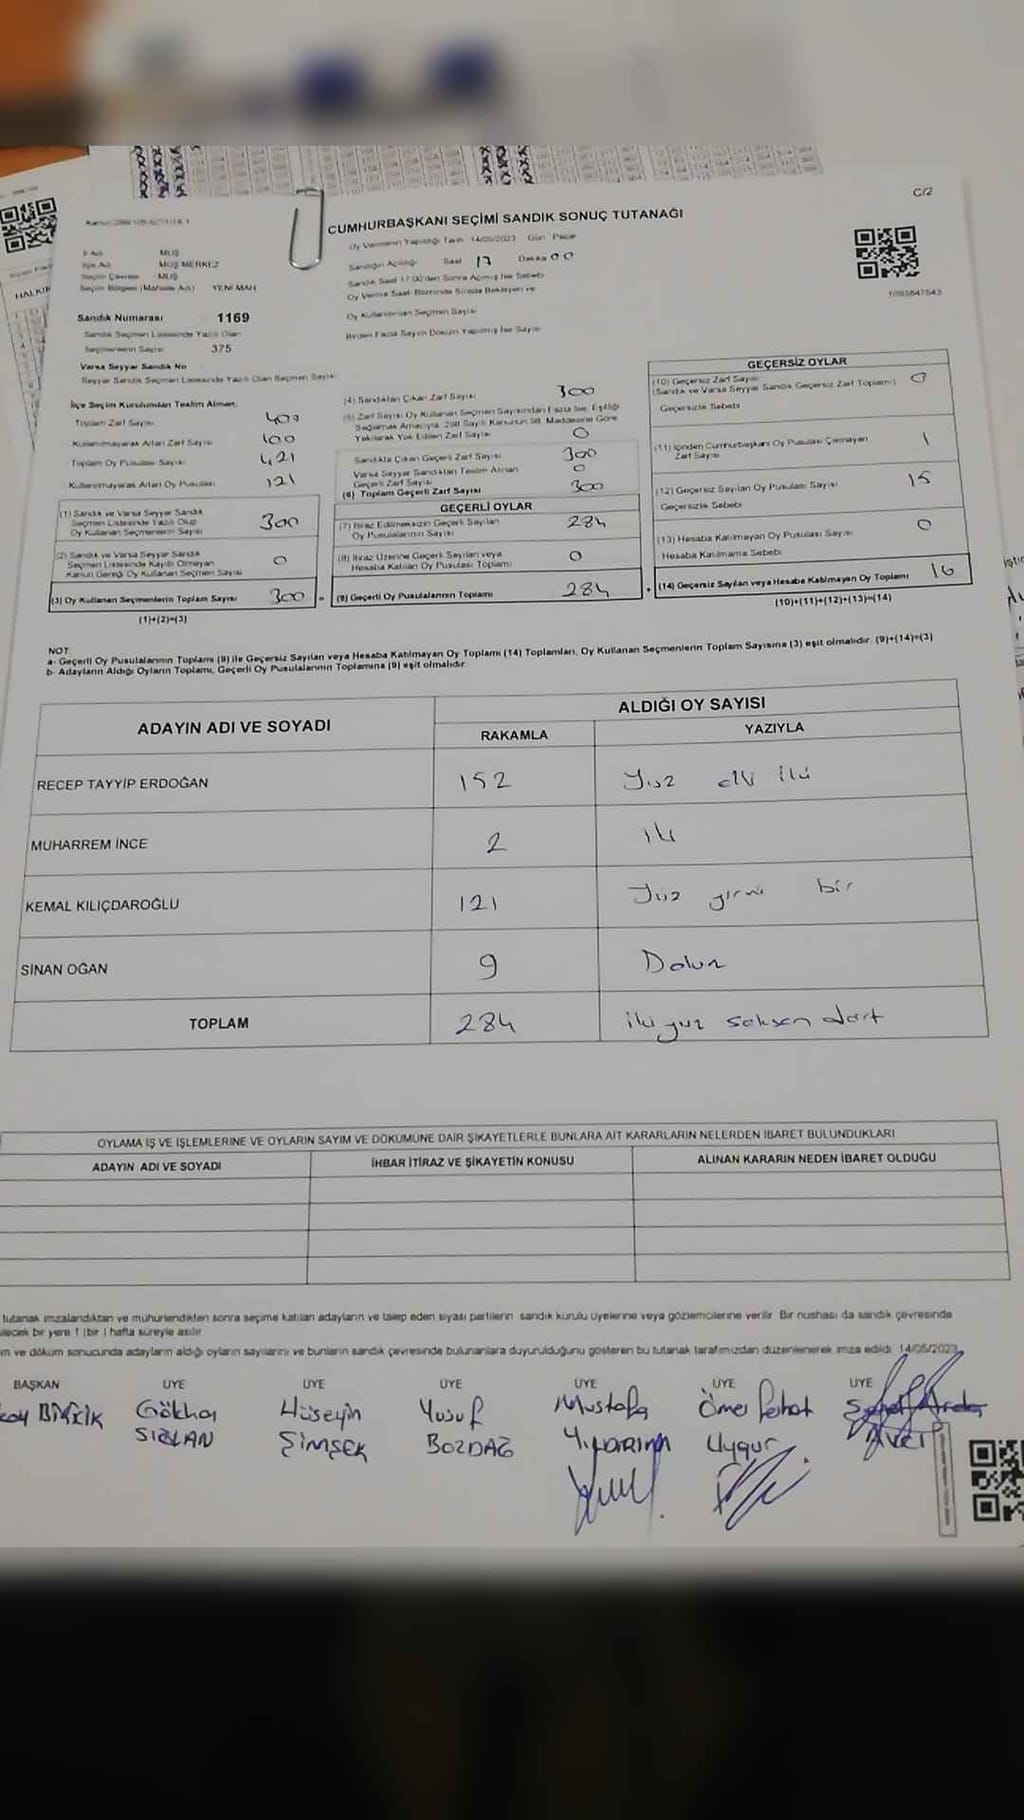 C/2
CUMHURBAŞKANI SEÇİMİ SANDIK SONUÇ TUTANAĞI
Oy Vermenin Yapıldığı Tarih 14/05/2023 Gün Pazar
Sandığın Açılışı Saat 17 Dakika 00
Sandık Saat 17:00'den Sonra Açılmış İse Sebebi
Oy Verme Saati Bitiminde Sırada Bekleyen ve
Oy Kullandırılan Seçmen Sayısı
Birden Fazla Sayım Döküm Yapılmış İse Sayısı
1093847543
İl Adı MUŞ
İlçe Adı MUŞ MERKEZ
Seçim Çevresi MUŞ
Seçim Bölgesi (Mahalle Adı) YENİ MAH
Sandık Numarası 1169
Sandık Seçmen Listesinde Yazılı Olan
Seçmenlerin Sayısı 375
Varsa Seyyar Sandık No
Seyyar Sandık Seçmen Listesinde Yazılı Olan Seçmen Sayısı
İlçe Seçim Kurulundan Teslim Alınan:
Toplam Zarf Sayısı 400
Kullanılmayarak Artan Zarf Sayısı 100
Toplam Oy Pusulası Sayısı 421
Kullanılmayarak Artan Oy Pusulası 121
(1) Sandık ve Varsa Seyyar Sandık
Seçmen Listesinde Yazılı Olup
Oy Kullanan Seçmenlerin Sayısı 300
(2) Sandık ve Varsa Seyyar Sandık
Seçmen Listesinde Kayıtlı Olmayan
Kanun Gereği Oy Kullanan Seçmen Sayısı 0
(3) Oy Kullanan Seçmenlerin Toplam Sayısı 300
(1)+(2)=(3)
(4) Sandıktan Çıkan Zarf Sayısı 300
(5) Zarf Sayısı Oy Kullanan Seçmen Sayısından Fazla İse, Eşitliği
Sağlamak Amacıyla, 298 Sayılı Kanunun 98. Maddesine Göre
Yakılarak Yok Edilen Zarf Sayısı 0
Sandıkta Çıkan Geçerli Zarf Sayısı 300
Varsa Seyyar Sandıktan Teslim Alınan
Geçerli Zarf Sayısı 0
(6) Toplam Geçerli Zarf Sayısı 300
GEÇERLİ OYLAR
(7) İtiraz Edilmeksizin Geçerli Sayılan
Oy Pusulalarının Sayısı 284
(8) İtiraz Üzerine Geçerli Sayılan veya
Hesaba Katılan Oy Pusulası Toplamı 0
= (9) Geçerli Oy Pusulalarının Toplamı 284
GEÇERSİZ OYLAR
(10) Geçersiz Zarf Sayısı
(Sandık ve Varsa Seyyar Sandık Geçersiz Zarf Toplamı) 0
Geçersizlik Sebebi
(11) İçinden Cumhurbaşkanı Oy Pusulası Çıkmayan
Zarf Sayısı 1
(12) Geçersiz Sayılan Oy Pusulası Sayısı 15
Geçersizlik Sebebi
(13) Hesaba Katılmayan Oy Pusulası Sayısı 0
Hesaba Katılmama Sebebi
+ (14) Geçersiz Sayılan veya Hesaba Katılmayan Oy Toplamı 16
(10)+(11)+(12)+(13)=(14)
NOT:
a- Geçerli Oy Pusulalarının Toplamı (9) ile Geçersiz Sayılan veya Hesaba Katılmayan Oy Toplamı (14) Toplamları, Oy Kullanan Seçmenlerin Toplam Sayısına (3) eşit olmalıdır. (9)+(14)=(3)
b- Adayların Aldığı Oyların Toplamı, Geçerli Oy Pusulalarının Toplamına (9) eşit olmalıdır.
ADAYIN ADI VE SOYADI ALDIĞI OY SAYISI
RAKAMLA YAZIYLA
RECEP TAYYİP ERDOĞAN 152 Yüz elli iki
MUHARREM İNCE 2 iki
KEMAL KILIÇDAROĞLU 121 Yüz yirmi bir
SİNAN OĞAN 9 Dokuz
TOPLAM 284 iki yüz seksen dört
OYLAMA İŞ VE İŞLEMLERİNE VE OYLARIN SAYIM VE DÖKÜMÜNE DAİR ŞİKAYETLERLE BUNLARA AİT KARARLARIN NELERDEN İBARET BULUNDUKLARI
ADAYIN ADI VE SOYADI İHBAR İTİRAZ VE ŞİKAYETİN KONUSU ALINAN KARARIN NEDEN İBARET OLDUĞU
tutanak imzalandıktan ve mühürlendikten sonra seçime katılan adayların ve talep eden siyasi partilerin sandık kurulu üyelerine veya gözlemcilerine verilir. Bir nüshası da sandık çevresinde
bir yere 1 (bir ) hafta süreyle asılır.
ve döküm sonucunda adayların aldığı oyların sayılarını ve bunların sandık çevresinde bulunanlara duyurulduğunu gösteren bu tutanak tarafımızdan düzenlenerek imza edildi. 14/05/2023
BAŞKAN ÜYE ÜYE ÜYE ÜYE ÜYE ÜYE
Gökhan Hüseyin Yusuf Mustafa Ömer Ferhat
SIRLAN ŞİMŞEK BOZDAĞ Uygur